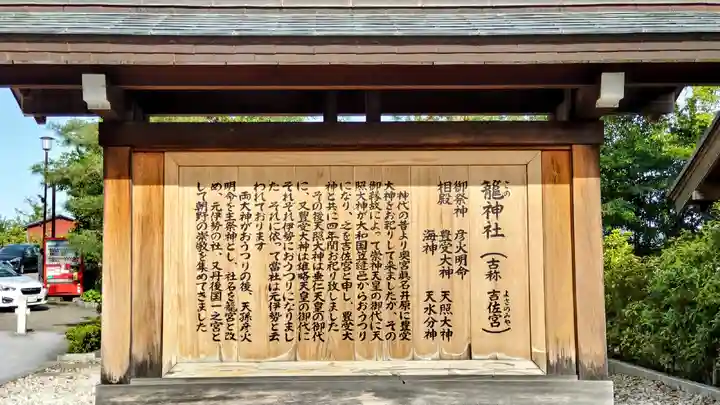 この
籠神社（古称 吉佐宮）
よさのみや
御祭神 彦火明命
相殿 豊受大神 天照大神
海神 天水分神
神代の昔より奥宮眞名井原に豊受
大神をお祀りして来ましたが、その
御縁故によって崇神天皇の御代に天
照大神が大和国笠縫邑からおうつり
になり、之を吉佐宮と申し、豊受大
神と共に四年間お祀り致しました
その後天照大神は垂仁天皇の御代
に、又豊受大神は雄略天皇の御代に
それぞれ伊勢におうつりになりまし
た それに依って當社は元伊勢と云
われております
両大神がおうつりの後、天孫彦火
明命を主祭神とし、社名を籠宮と改
め、元伊勢の社、又丹後国一之宮と
して朝野の崇敬を集めてきました